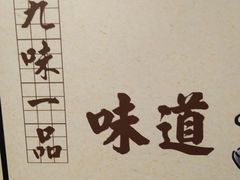 九味一品
味道